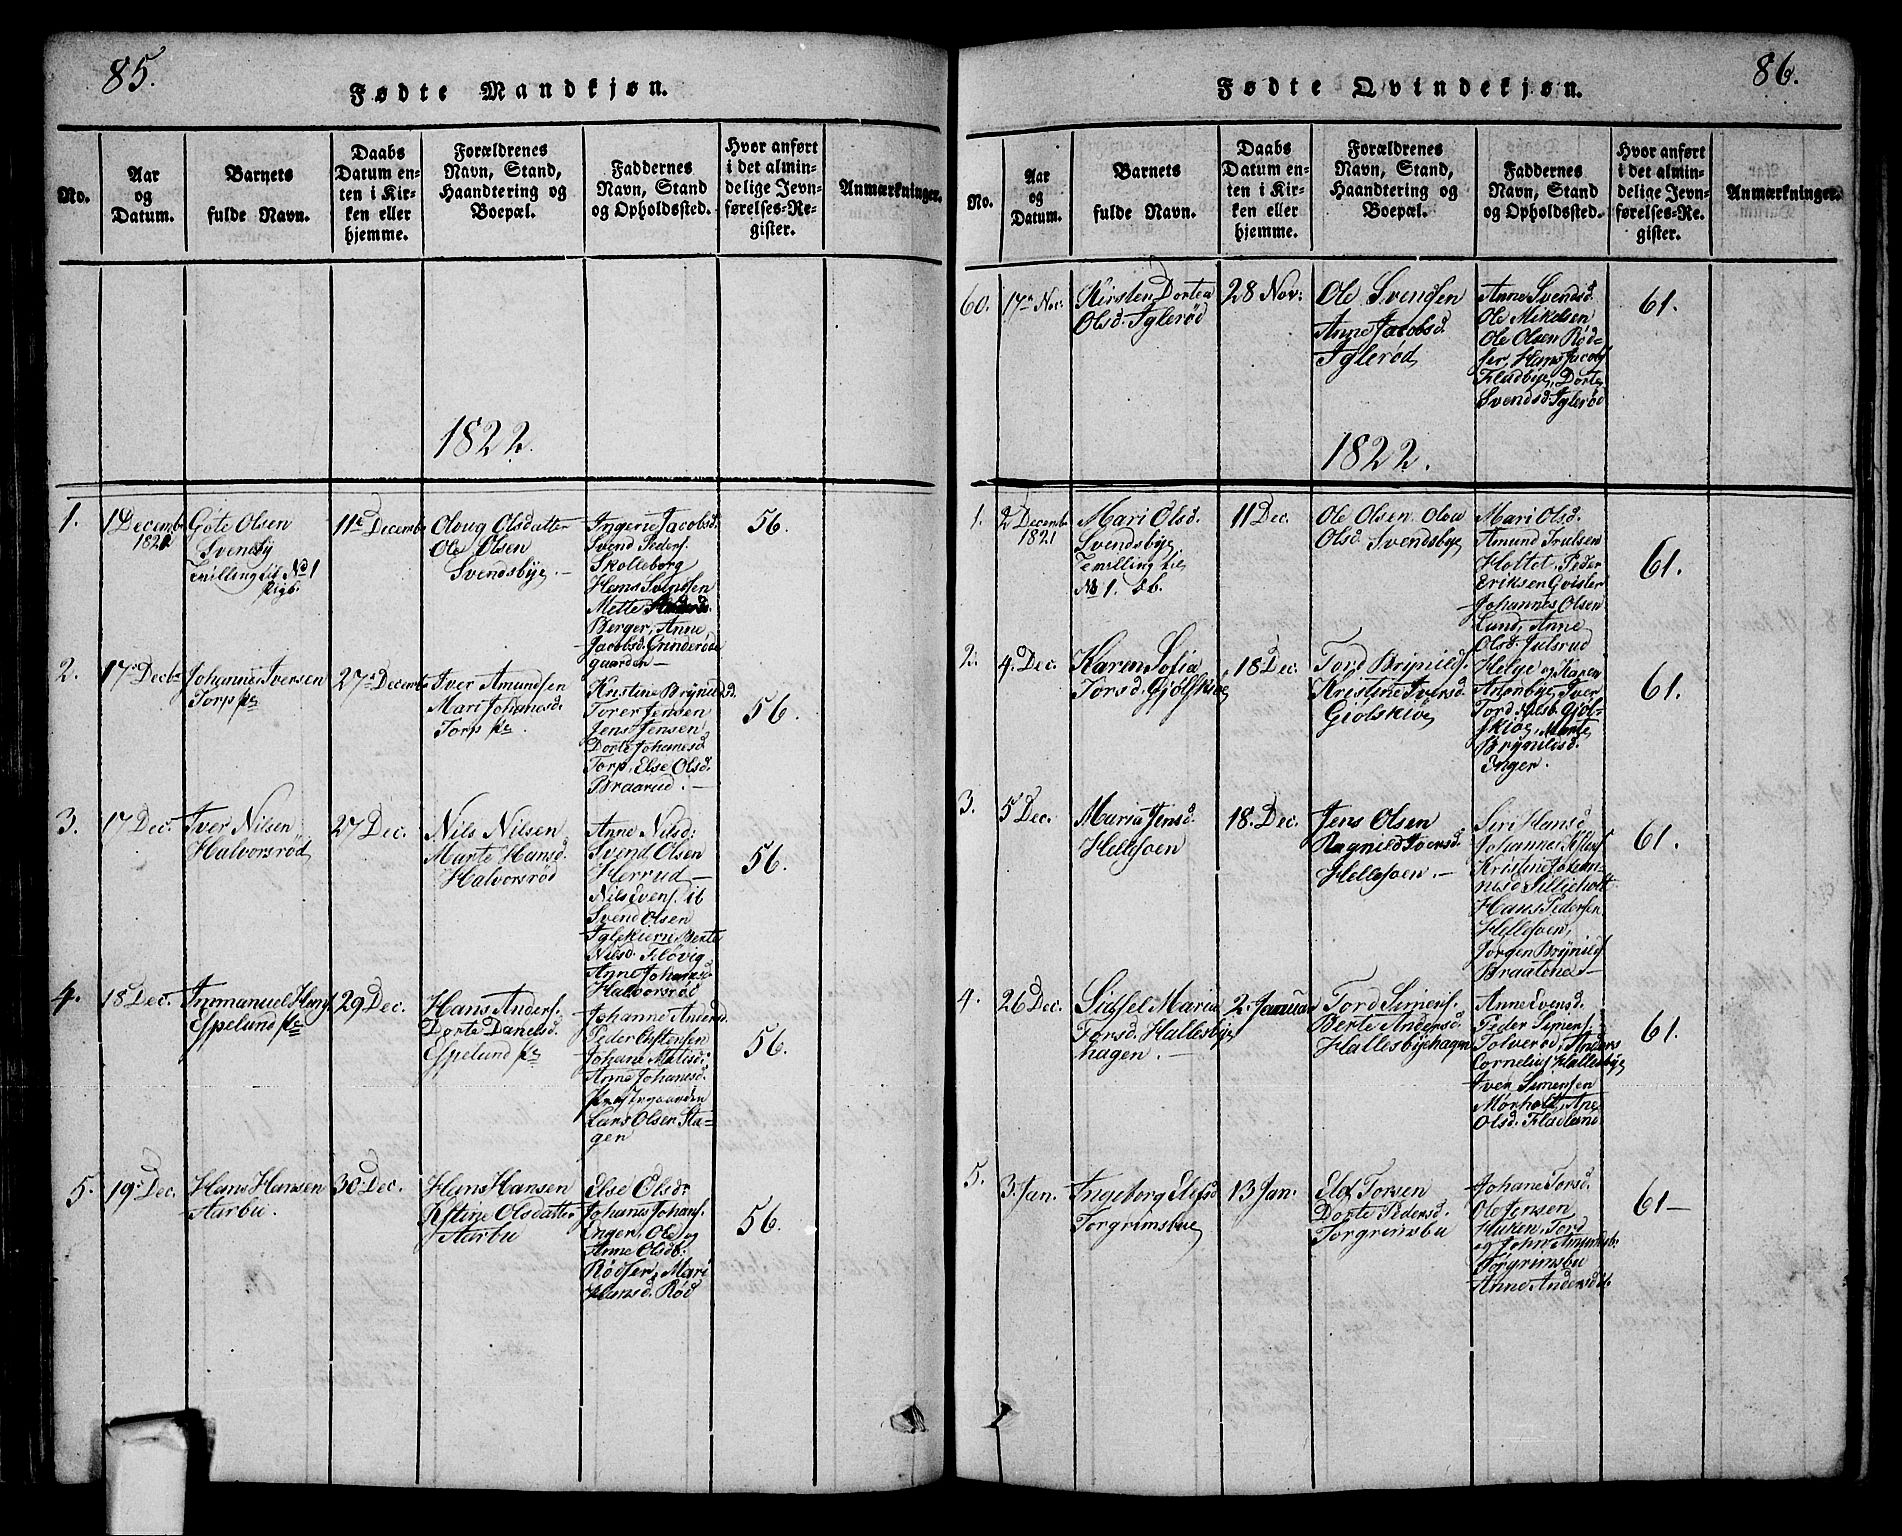 85.
Fødte Mandkjøn.
No.
Aar
og
Datum.
Barnets
fulde Navn.
Daabs
Datum en-
ten i Kir-
ken eller
hjemme.
Forældrenes
Navn, Stand,
Haandtering og
Boepæl.
Faddernes
Navn, Stand
og Opholdssted.
Hvor anført
i det almin-
delige Jevn-
førelses-Re-
gister.
Anmærkninger.
1822.
1.
1 Decemb
1821.
Gôte Olsen
Svensby
Tvilling til No 1
11te Decemb
Oloug Olsdatter
Ole Olsen
Svendsbye.
Ingerie Jacobsd.
Svend Peders.
Skolleborg
Hans Svendsen
Mette
Berger, Anne
Jacobsd. Grinderøde
gaarden
56.
2.
17 Decbr
Johannes Iversen
Torp
27 Decemb
Iver Amundsen
Mari Johanesd.
Torp
Kristine Brynilds.
Torer Jensen
Jens Jensen
Dorte Johanesd
Torp, Else Olsd.
Braarud.
56.
3.
17 Dec.
Iver Nilsen
Halvorsrød
27 Dec.
Nils Nilsen
Marte Hansd.
Halvorsrød
Anne Nilsd:
Svend Olsen
Herrud
Nils Svens. ib
Svend Olsen
Iglekiern Berte
Nilsd. Fløvig
Anne Johanesd
Halvorsrød
56.
4.
18 Dec.
Immanuel Hans.
Espelund
29 Dec.
Hans Anders.
Dorte Danelsd.
Espelund
Johanne Andersd
Peder Chstensen
Johane Matsd:
Anne Johanesd.
Prestegaarden
Lars Olsen Sta-
gen
56.
5.
19 Dec.
Hans Hansen
Aarbu.
30 Dec.
Hans Hansen
Kstine Olsdatter
Aarbu
Else Olsd:
Johanes Johans.
Enger, Ole og
Anne Olsdb:
Rødser, Mari
Hansd. Rød
56.
86.
Fødte Qvindekjøn.
No.
Aar
og
Datum.
Barnets
fulde Navn.
Daabs
Datum en-
ten i Kir-
ken eller
hjemme.
Forældrenes
Navn, Stand,
Haandtering og
Boepæl.
Faddernes
Navn, Stand
og Opholdssted.
Hvor anført
i det almin-
delige Jevn-
førelses-Re-
gister.
Anmærkninger.
60.
17 Nov:
Kirsten Dortea
Olsd. Iglerød
28 Nov:
Ole Svendsen
Anne Jacobsd.
Iglerød
Anne Svendsd.
Ole Mikelsen
Ole Olsen Rød-
ser, Hans Jacobs
Fladbye, Dorte
Svendsd. Iglerød
61.
1822.
1.
2 Decemb.
1821
Mari Olsd.
Svendsbye.
Tvilling til
No 1.
11 Dec.
Ole Olsen Olea
Olsd. Svendsbye
Mari Olsd.
Amund Trulsen
Holtet, Peder
Eriksen Gvister
Johannes Olsen
Lund, Anne
Olsd. Julsrud
61.
2.
4. Dec.
Karen Sofia
Torsd. Gjølskiøe
18 Dec.
Tord Brynilds.
Kristine Iversd.
Giølskiøe
Helge og Karen
Antonbye, Iver
Tord Nilsb. Giøl-
skiøe, Marte
Brynildsd.
Enger.
61.
3.
5 Dec.
Maria Jensd.
Hellesoen
18. Dec.
Jens Olsen
Ragnild Iversd.
Hellesoen.
Siri Hansd
Johannes
Kristine Johan-
nesd Sillieholt
Hans Pedersen
Hellesoen,
Jørgen Brynilds
Braatene
61.
4.
26 Dec.
Sidsel Maria
Torsd. Hallesbye
hagen.
2. Januar
Tord Simens.
Berte Andersd.
Hallesbyehagen
Anne Svensd.
Peder Simens.
Tolverød, Anders
Cornelius Hallesbye
Iver Simensen
Mørholt, Ane
Olsd. Fladlene
61.
5.
3. Jan.
Ingeborg Elefsd
Torgrimsbue
13 Jan.
Elof Torsen
Dorte Pedersd.
Torgrimsbu
Johane Torsd.
Ole Jensen
Huren, Tord
og John Amundsb.
Torgrimsbu
Anne Andersd ib.
61